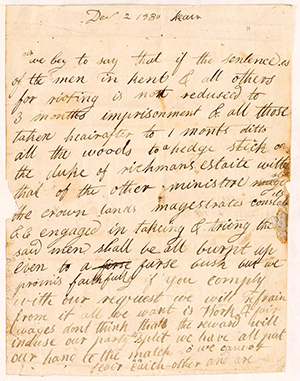 Dec 2 1830
we beg to say that if the sentence as
of the men in kent & all others
for rioting is not redused to
3 months imprisonment & all those
taken heairafter to 1 months ditto
all the woods to a hedge stick on
the duke of richmans estaite with
that of the other ministore
the crown lands magestrates
&c engaged in takeing & triong the
said men shall be all burnt up
even to a furse bush but we
promis faithfull if you comply
with our request we will refrain
from it all we want is work & fair
wages dont think that the reward will
induse our party split we have all put
our hand to the match so we cannot
each other and are